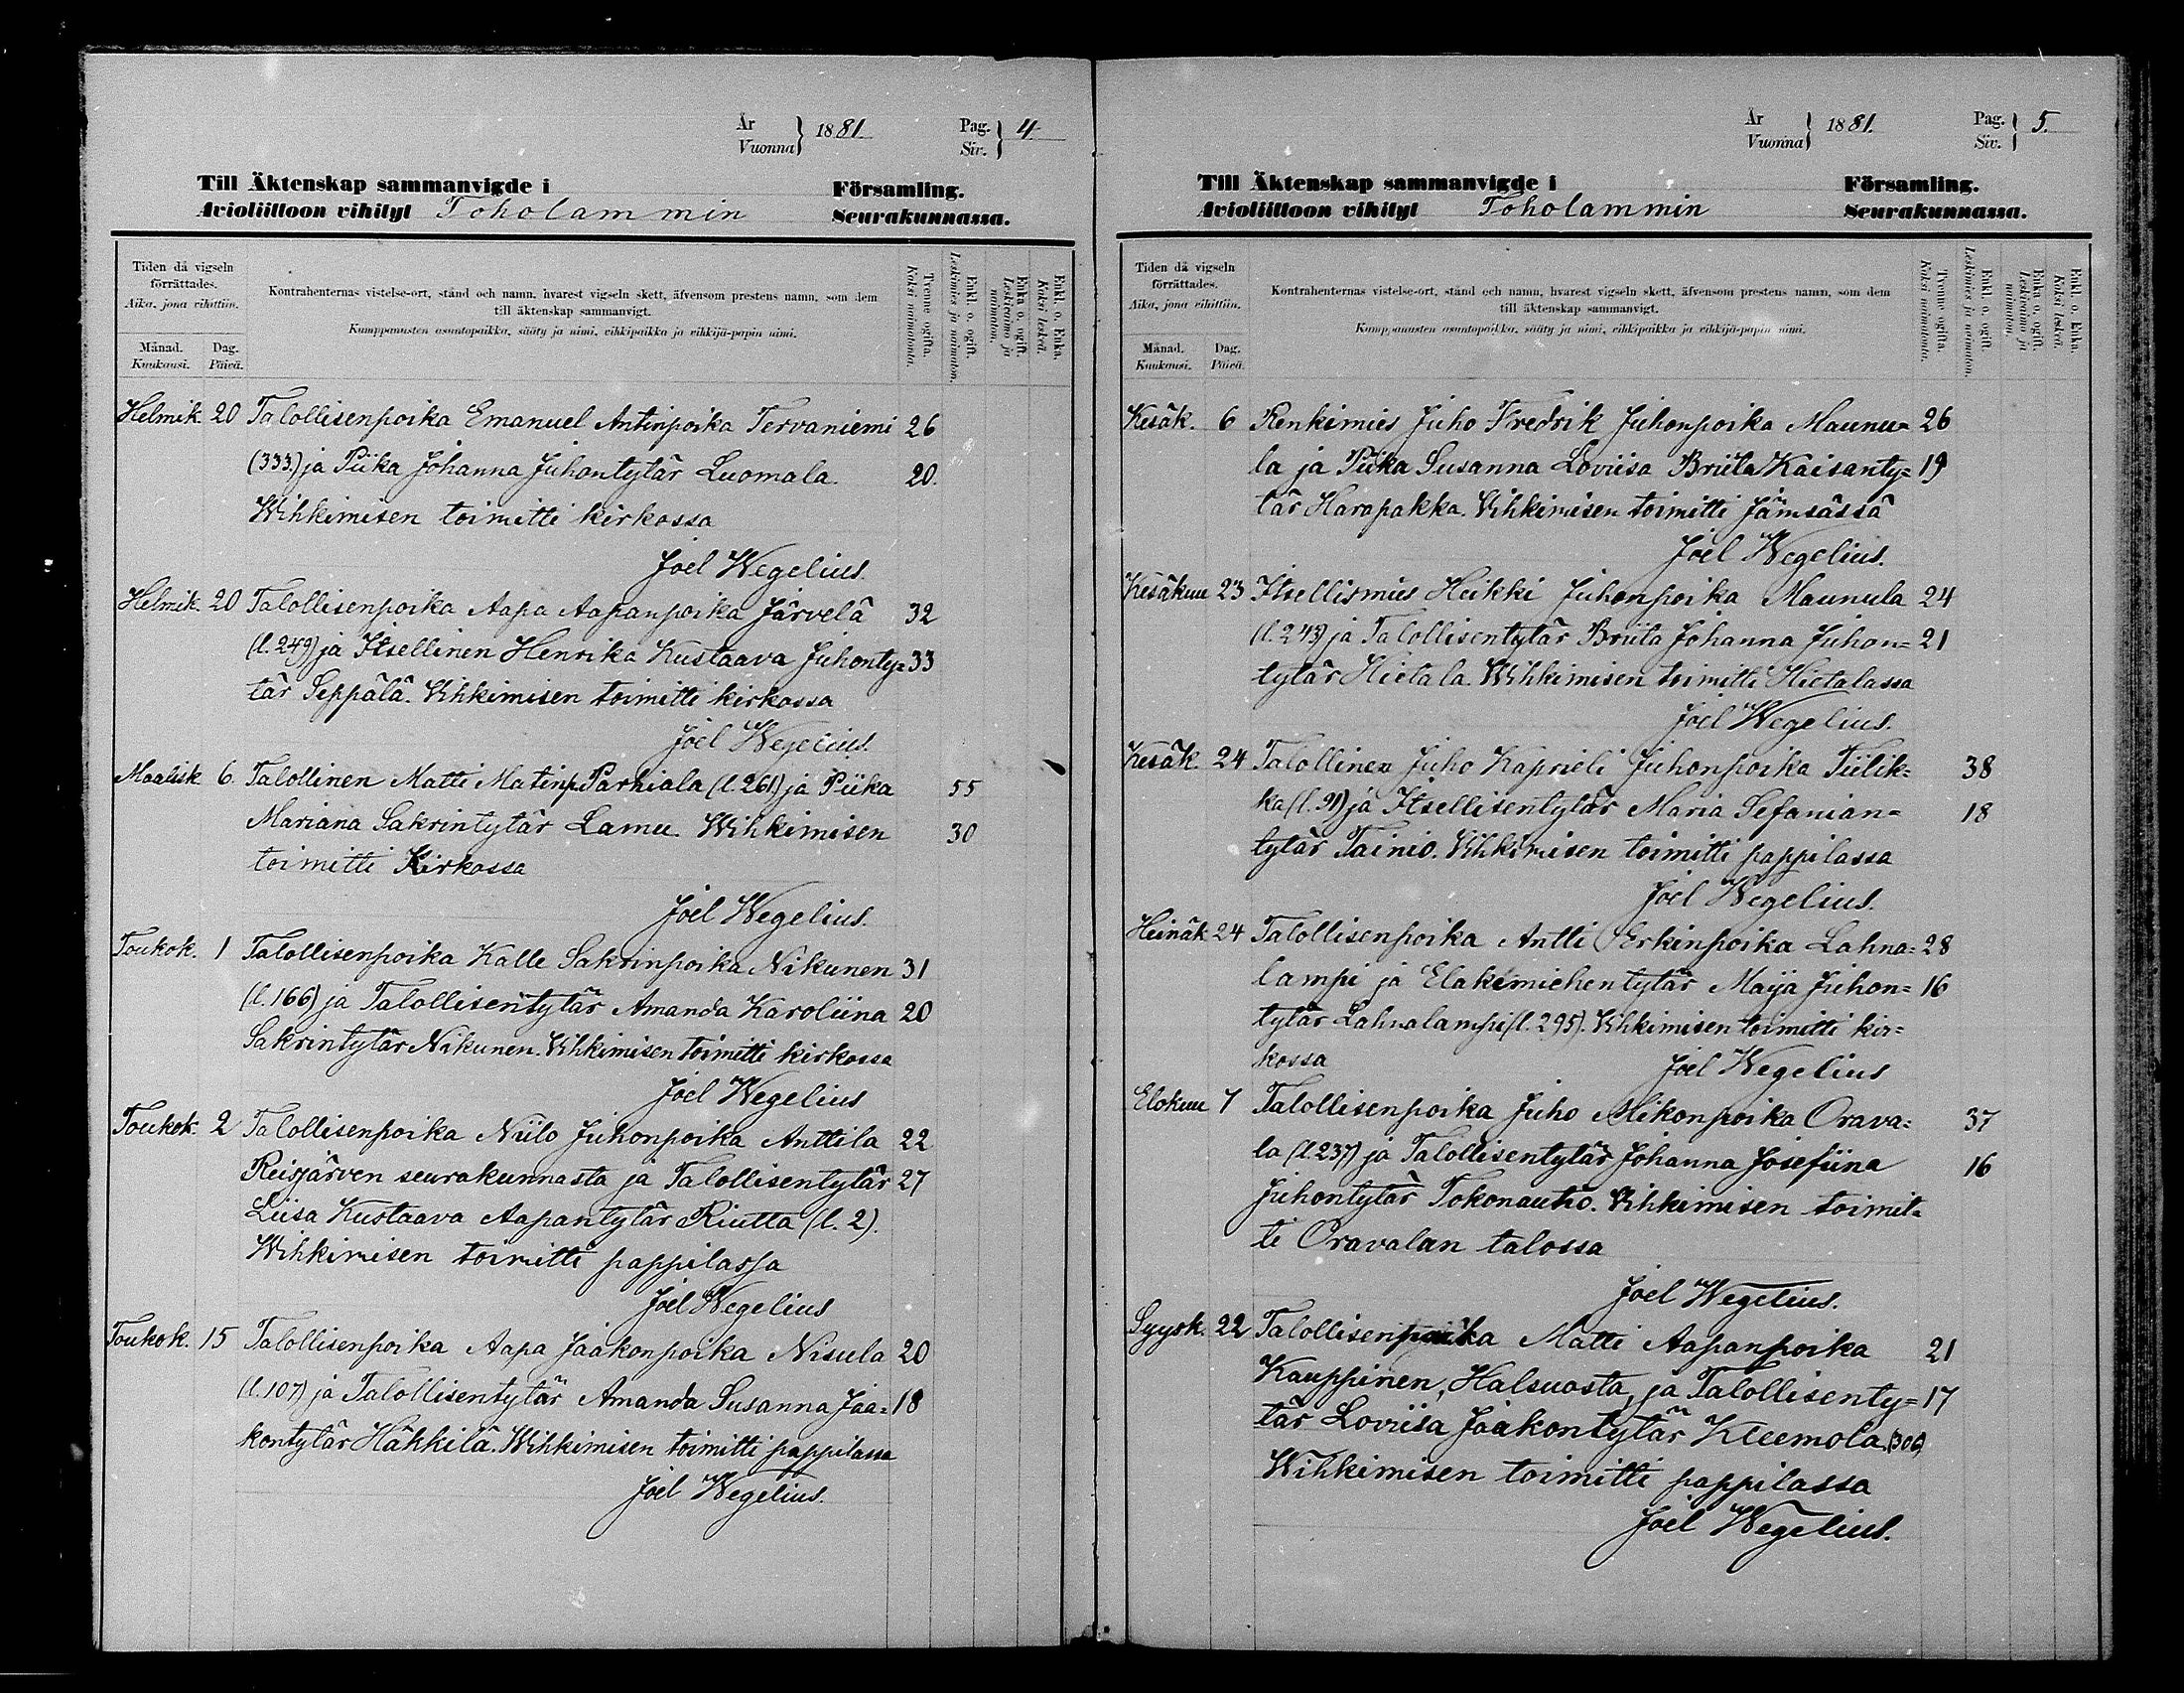 År
Vuonna } 1881.
Pag.
Siv. } 4.
Till Äktenskap sammanvigde i Församling.
Avioliittoon vihityt Toholammin Seurakunnassa.
Tiden då vigseln förrättades.
Aika, jona vihittiin.
Månad.
Kuukausi.
Dag.
Päivä.
Kontrahenternas vistelse-ort, stånd och namn, hvarest vigseln skett, äfvensom prestens namn, som dem
till äktenskap sammanvigt.
Kumppanusten asuntopaikka, sääty ja nimi, vihkipaikka ja vihkijä-papin nimi.
Tvenne ogifta.
Kaksi naimatonta.
Enkl. o. ogift.
Leskimies ja naimaton.
Enka o. ogift.
Leskivaimo ja naimaton.
Enkl. o. Enka.
Kaksi leskeä.
Helmik. 20 Talollisenpoika Emanuel Antinpoika Tervaniemi 26
(333.) ja Piika Johanna Juhontytär Luomala. 20.
Wihkimisen toimitti kirkossa
Joel Wegelius.
Helmik. 20 Talollisenpoika Aapa Aapanpoika Järvelä 32
(l. 249) ja Itsellinen Henrika Kustaava Juhonty= 33
tär Seppälä. Vihkimisen toimitti kirkossa
Joel Wegelius.
Maalisk 6. Talollinen Matti Matinp. Parhiala (l. 261.) ja Piika 55
Mariana Sakrintytär Lamu. Wihkimisen 30
toimitti Kirkossa
Joel Wegelius.
Toukok. 1 Talollisenpoika Kalle Sakrinpoika Nikunen 31
(l. 166) ja Talollisentytär Amanda Karoliina 20
Sakrintytär Nikunen. Vihkimisen toimitti kirkossa
Joel Wegelius
Toukok. 2 Talollisenpoika Niilo Juhonpoika Anttila 22
Reisjärven seurakunnasta ja Talollisentytär 27
Liisa Kustaava Aapantytär Riutta (l. 2).
Wihkimisen toimitti pappilassa
Joel Wegelius
Toukok. 15 Talollisenpoika Aapa Jaakonpoika Nisula 20
(l. 107) ja Talollisentytär Amanda Susanna Jaa= 18
kontytär Häkkilä. Wihkimisen toimitti pappilassa
Joel Wegelius.
År
Vuonna } 1881.
Pag.
Siv. } 5.
Till Äktenskap sammanvigde i Församling.
Avioliittoon vihityt Toholammin Seurakunnassa.
Tiden då vigseln förrättades.
Aika, jona vihittiin.
Månad.
Kuukausi.
Dag.
Päivä.
Kontrahenternas vistelse-ort, stånd och namn, hvarest vigseln skett, äfvensom prestens namn, som dem
till äktenskap sammanvigt.
Kumppanusten asuntopaikka, sääty ja nimi, vihkipaikka ja vihkijä-papin nimi.
Tvenne ogifta.
Kaksi naimatonta.
Enkl. o. ogift.
Leskimies ja naimaton.
Enka o. ogift.
Leskivaimo ja naimaton.
Enkl. o. Enka.
Kaksi leskeä.
Kesäk. 6 Renkimies Juho Fredrik Juhonpoika Maunu= 26
la ja Piika Susanna Loviisa Briita Kaisanty= 19
tär Harapakka. Vihkimisen toimitti Jämsässä
Joel Wegelius.
Kesäkuu 23 Itsellismies Heikki Juhonpoika Maunula 24
(l. 243) ja Talollisentytär Briita Johanna Juhon= 21
tytär Hietala. Wihkimisen toimitti Hietalassa
Joel Wegelius.
Kesäk. 24 Talollinen Juho Kaprieli Juhonpoika Tiilik= 38
ka (l. 91) ja Itsellisentytär Maria Sefanian= 18
tytär Tainio. Vihkimisen toimitti pappilassa
Joel Wegelius.
Heinäk 24 Talollisenpoika Antti Erkinpoika Lahna= 28
lampi ja Elakemiehentytär Maija Juhon= 16
tytär Lahnalampi (l. 295). Vihkimisen toimitti kir=
kossa
Joel Wegelius
Elokuu 7 Talollisenpoika Juho Mikonpoika Orava= 37
la (l. 237) ja Talollisentytär Johanna Josefiina 16
Juhontytär Tokonautio. Vihkimisen toimit=
ti Oravalan talossa
Joel Wegelius.
Syysk. 22 Talollisenpoika Matti Aapanpoika 21
Kauppinen, Halsuasta, ja Talollisenty= 17
tär Loviisa Jaakontytär Kleemola.
Wihkimisen toimitti pappilassa
Joel Wegelius.